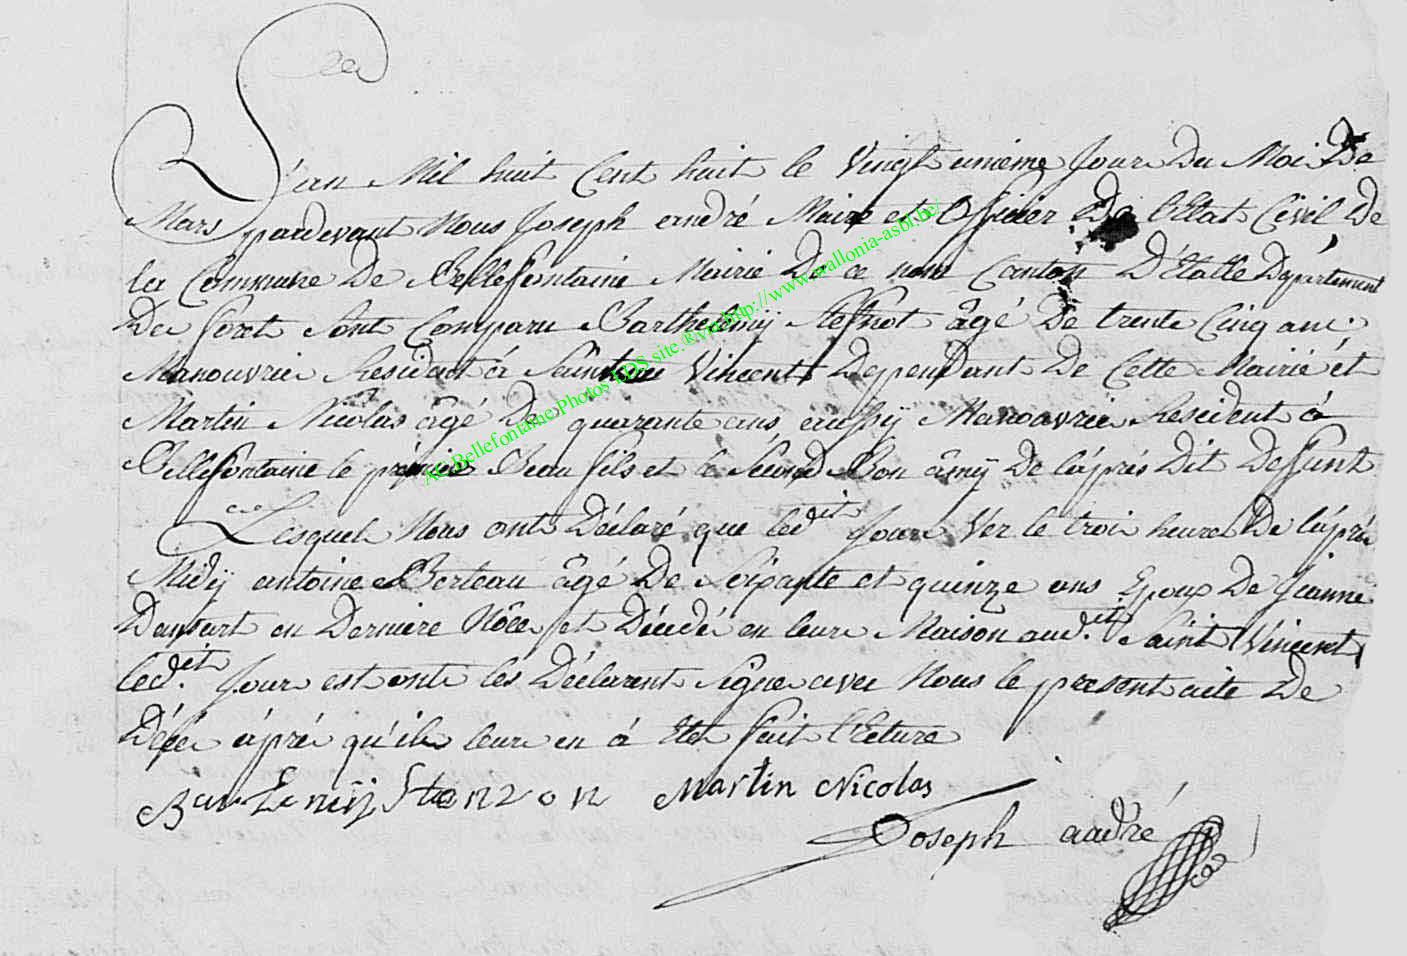 L'an Mil huit Cent huit le Vingt unieme Jour Du Moi De
Mars pardevant Nous Joseph andré Maire et Officier De l'Etat Civil De
la Commune De Bellefontaine Mairie De ce nom Canton D'Etalle Département
De foret sont Comparu Barthelemÿ âgé De trente Cinq ans
Manouvrier Résidant à Saint Vincent Dependant De Cette Mairie et
Martin Nicolas âgé De quarante ans aussÿ Manouvrier Resident à
Bellefontaine le premier Beau fils et le Second Bon amÿ De l'aprés Dit Deffunt
Lesquel Nous ont Déclaré que ledit Jour Ver le troi heure De l'aprés
Midÿ antoine Berteau âgé De Soixante et quinze ans Epoux De Jeanne
en Derniere Nôce et Décédé en leur Maison audit Saint Vincent
ledit Jour est ont les Déclarent Signé avec Nous le present acte De
Décé aprés qu'il leur en à Eté fait lecture
Martin Nicolas
Joseph andré
At. Bellefontaine.Photos EDS.site.®vpr.http://www.wallonia-asbl.be/